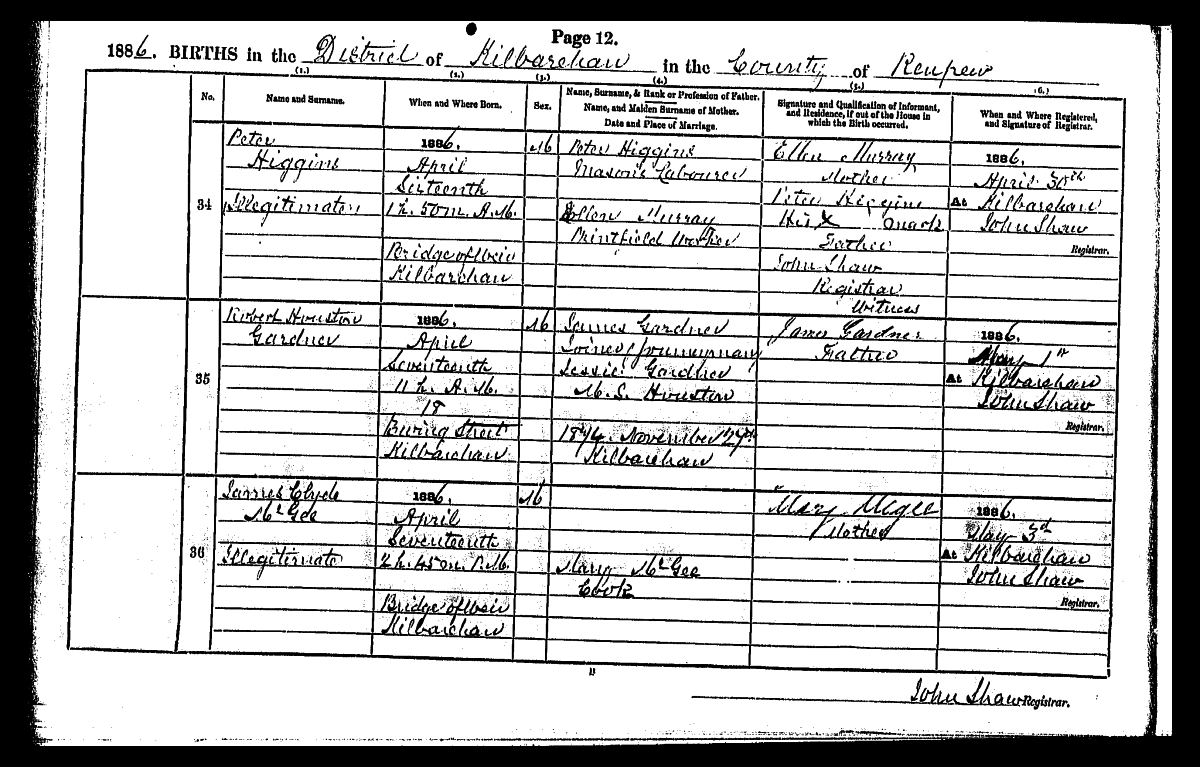 Page 12.
1886. BIRTHS in the District of Kilbarchan in the County of Renfrew
(1.) (2.) (3.) (4.) (5.) (6.)
No.
Name and Surname.
When and Where Born.
Sex.
Name, Surname, & Rank or Profession of Father.
Name, and Maiden Surname of Mother.
Date and Place of Marriage.
Signature and Qualification of Informant,
and Residence, if out of the House in
which the Birth occurred.
When and Where Registered,
and Signature of Registrar.
34
Peter
Higgins
Illegitimate
1886.
April
Sixteenth
1 h. 50 m. A.M.
Bridge of Weir
Kilbarchan
M
Peter Higgins
Mason's Labourer
Ellen Murray
Printfield Worker
Ellen Murray
Mother
Peter Higgins
His X mark
Father
John Shaw
Registrar
Witness
1886.
April 30th
At Kilbarchan
John Shaw
Registrar.
35
Robert Houston
Gardner
1886.
April
Seventeenth
11 h. A.M.
18
Street
Kilbarchan
M
James Gardner
Joiner Journeyman
Jessie Gardner
M.S. Houston
1874 November 27th
Kilbarchan
James Gardner
Father
1886.
May 1st
At Kilbarchan
John Shaw
Registrar.
36
James Clyde
McGee
Illegitimate
1886.
April
Seventeenth
2 h. 45 m. P.M.
Bridge of Weir
Kilbarchan
M
Mary McGee
Cook
Mary McGee
Mother
1886.
May 3d
At Kilbarchan
John Shaw
Registrar.
John Shaw Registrar.